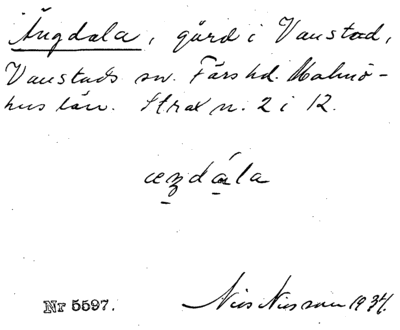 Ängdala, gård i Vanstad,
Vanstads sn. Färs hd. Malmö-
hus län. Strax n. 2 i 12.
æŋdála
Nr 5597.
Nils Nilsson 1934.